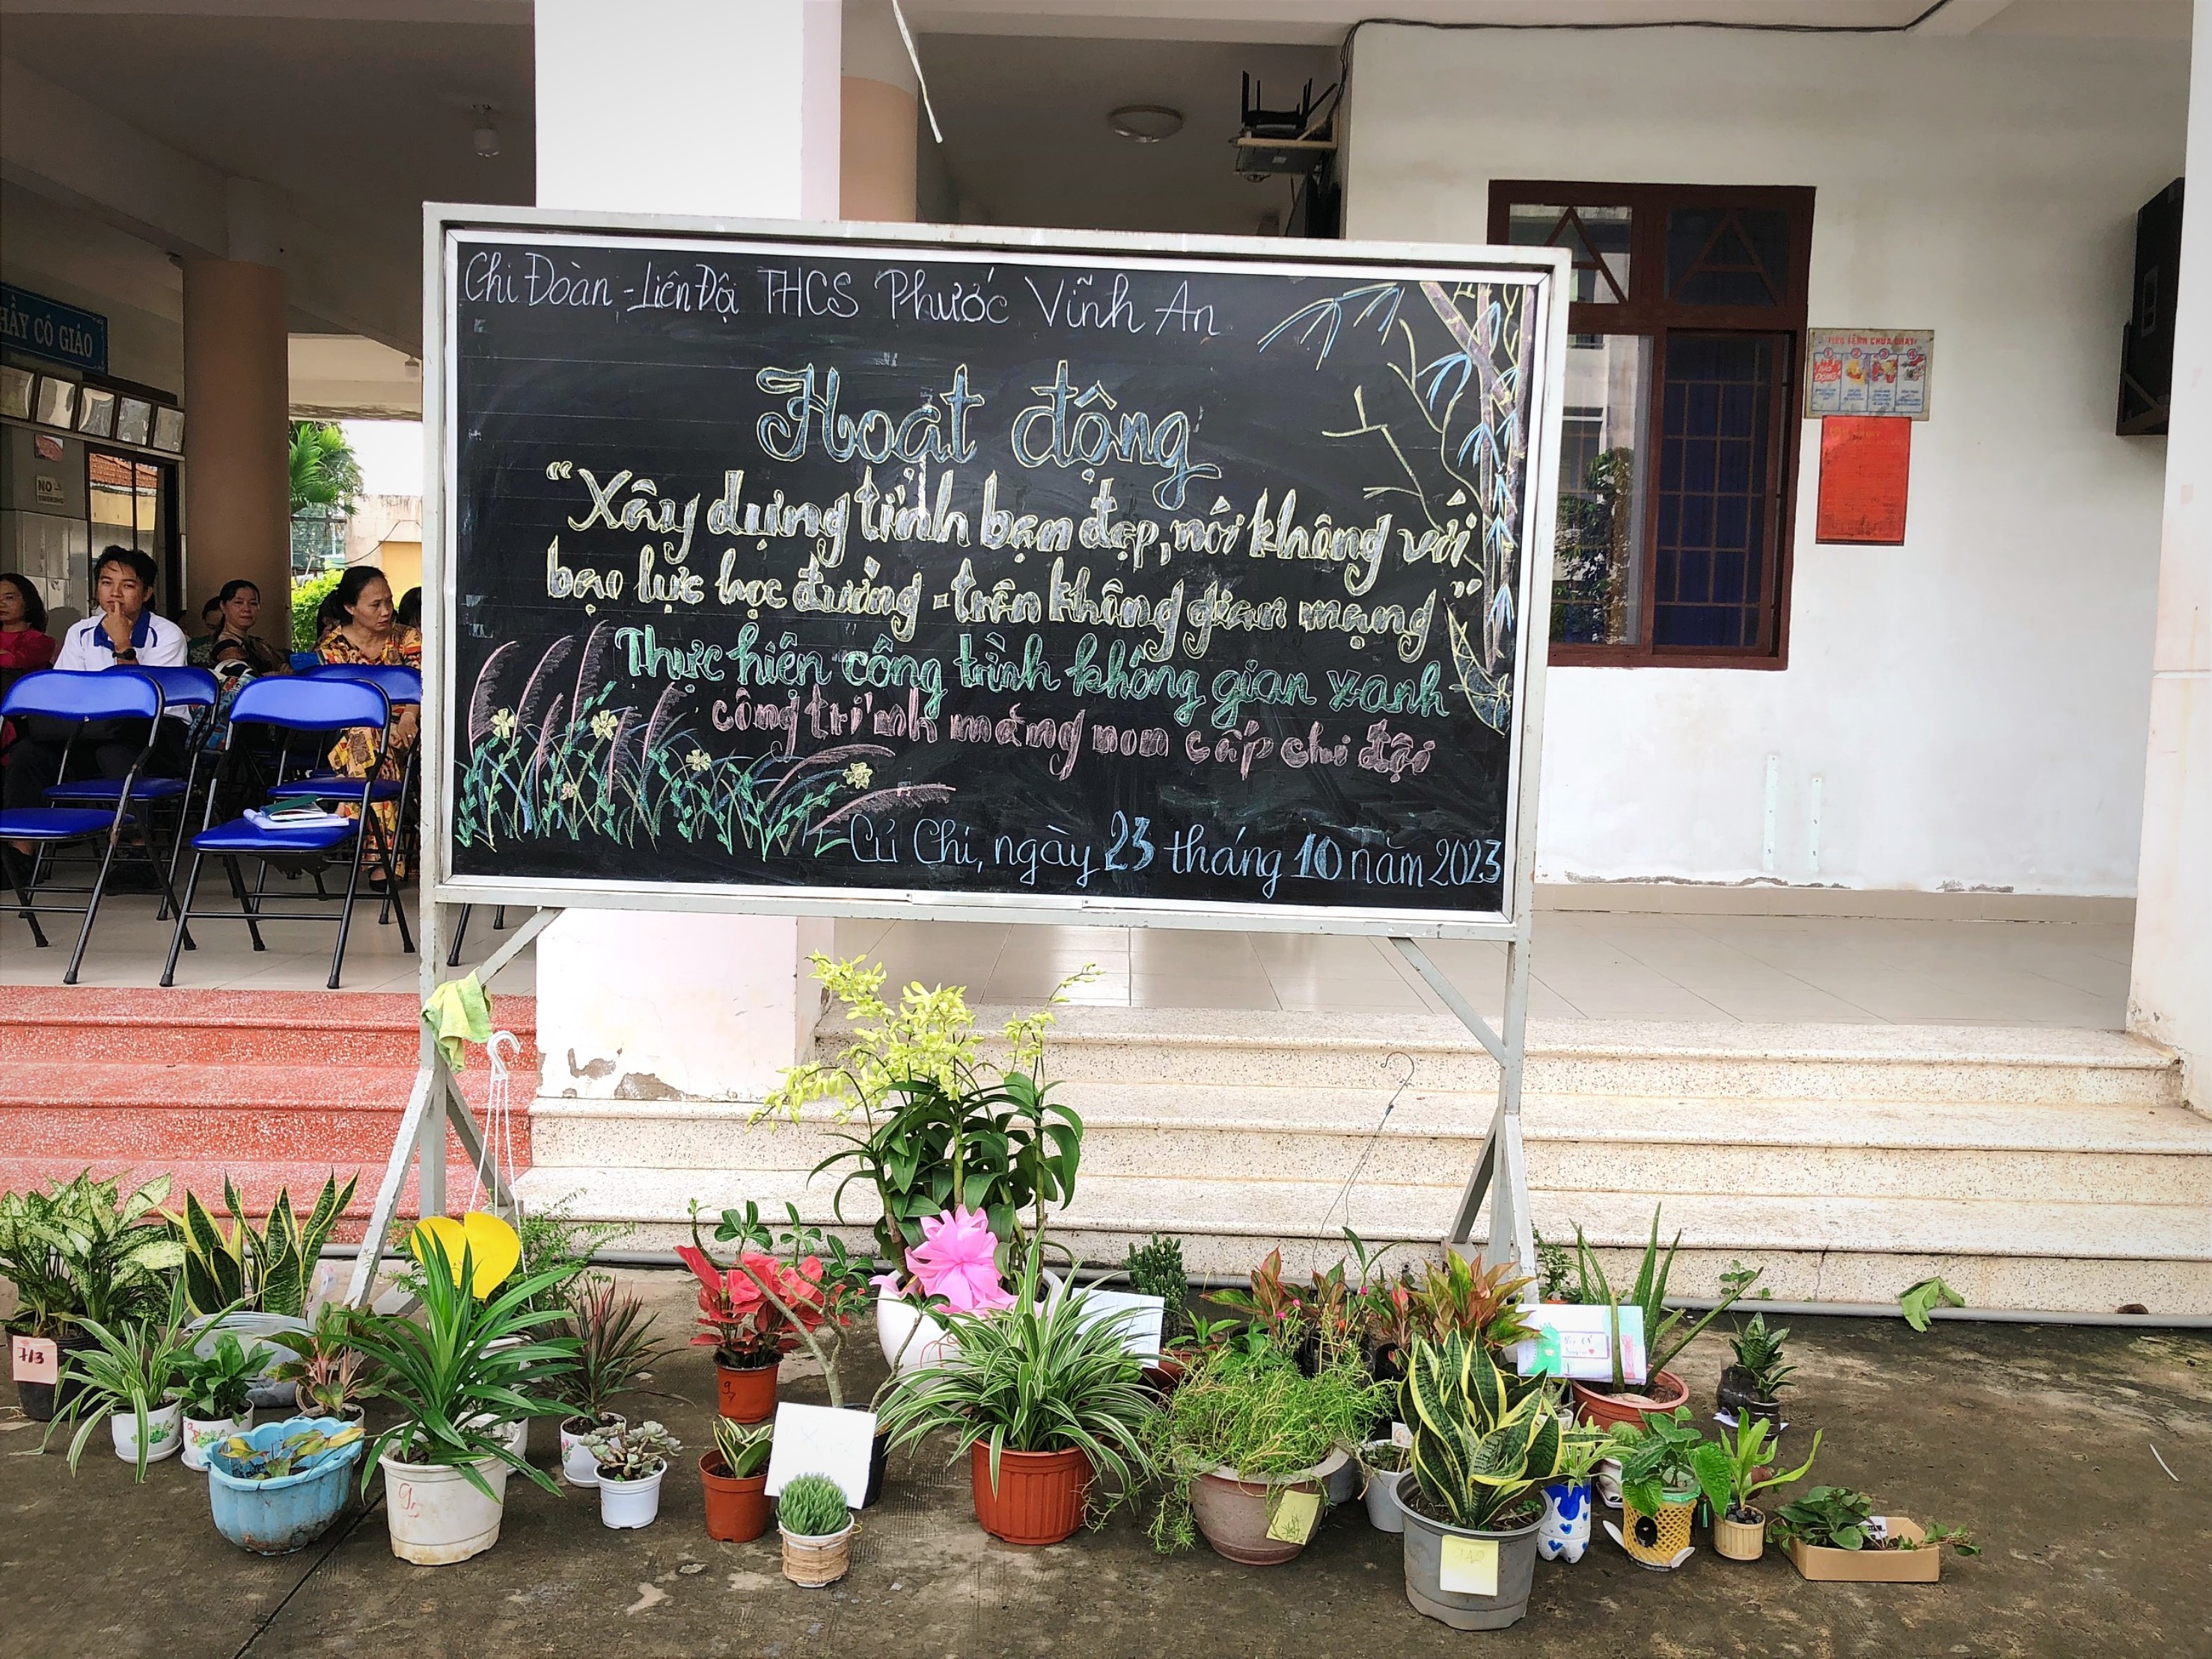 Chi Đoàn - Liên Đội THCS Phước Vĩnh An
Hoạt động
“Xây dựng tình bạn đẹp, nói không với
bạo lực học đường - trên không gian mạng”
Thực hiện công trình không gian xanh
công trình măng non cấp chi đội
Củ Chi, ngày 23 tháng 10 năm 2023
HẦY CÔ GIÁO
NO
SMOKING
TIÊU LỆNH CHỮA CHÁY
1 2 3 4
7/3
9/2
9/7